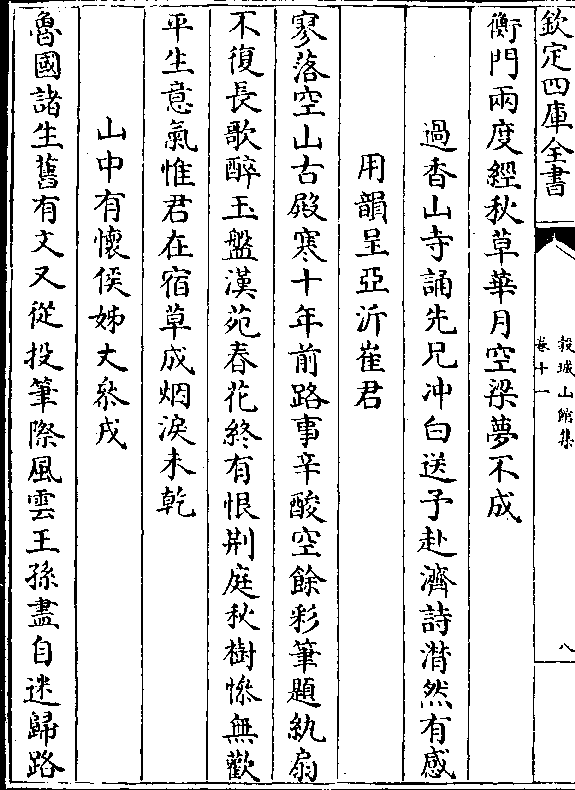 欽定四庫全書
穀城山館集
卷十一
八
衡門兩度經秋草華月空梁夢不成
過香山寺誦先兄冲白送予赴濟詩潸然有感
用韻呈亞沂崔君
寥落空山古殿寒十年前路事辛酸空餘彩筆題紈扇
不復長歌醉玉盤漢苑春花終有恨荆庭秋樹慘無歡
平生意氣惟君在宿草成烟淚未乾
山中有懷侯姊丈叅戎
魯國諸生舊有文又從投筆際風雲王孫盡自迷歸路